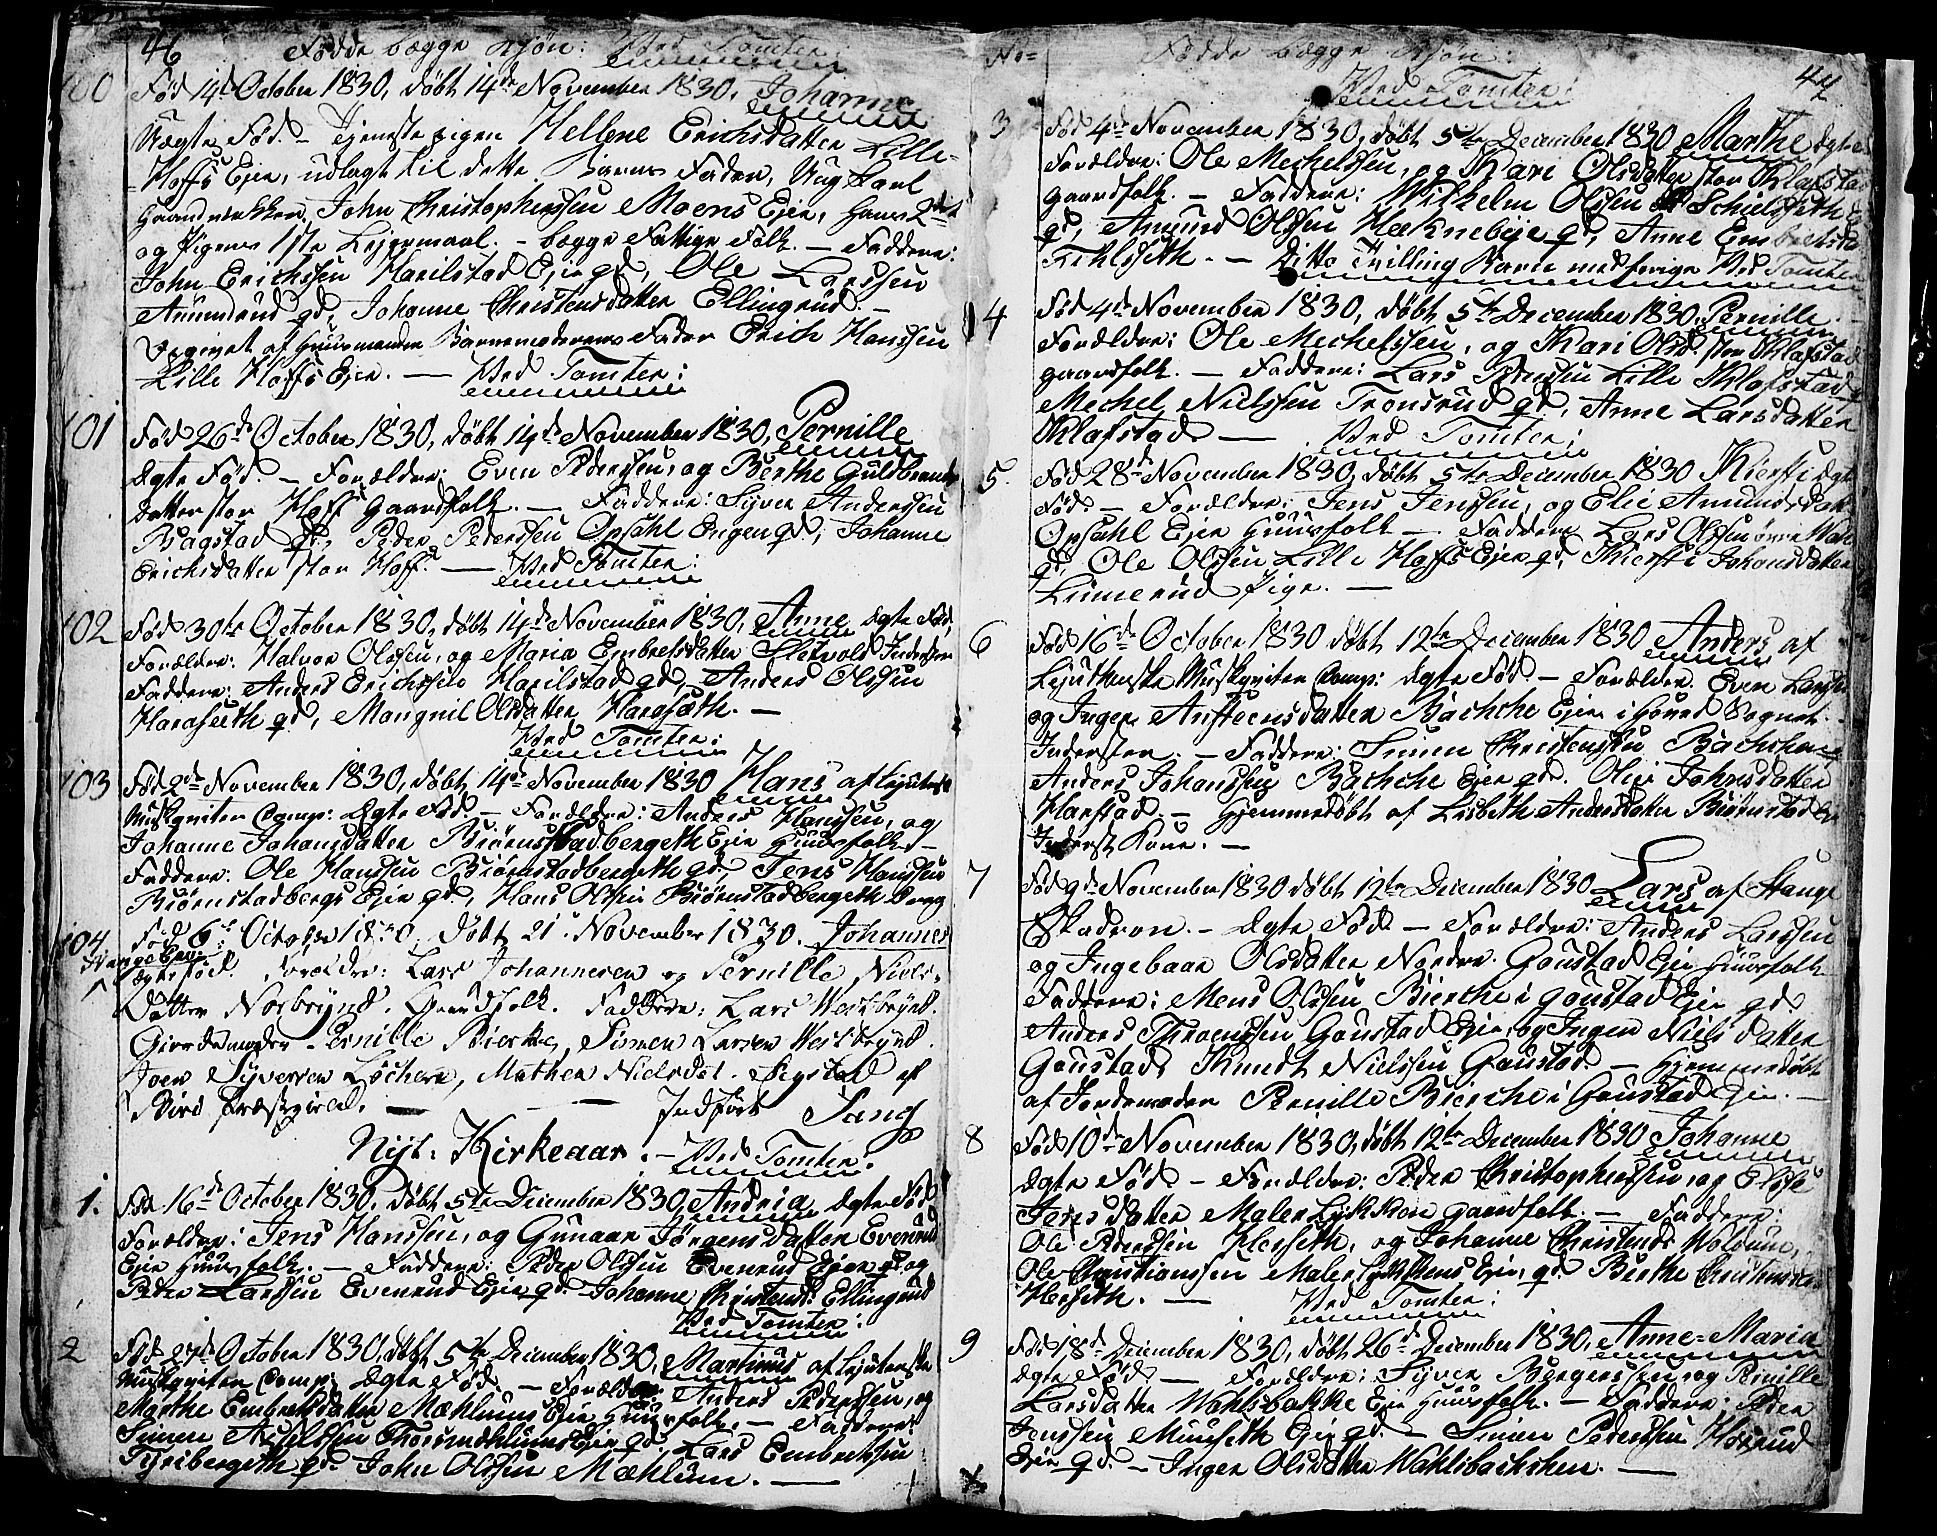 46 Fødde begge Kjøn: Ved Tomter:
100 Fød 14d October 1830, døbt 14de November 1830, Johanne
Uægte Fød. - Tjenestepigen Hellene Erichsdatter Lille-
Hoffs Eje, udlagt til dette Barns Fader, Ung Karl
John Christophersen Moens Eje, hans 2det
og Pigens 1ste Lejermaal. - begge Fattige Folk. - Faddere:
John Erichssen Harilstad Eje gd, Ole Larssen
Amundrud gd, Johanne Christensdatter Ellingrud. -
Opgivet af Huusmanden Barnemoderens Fader Erich Hanssen
Lille Hoffs Eje. - Ved Tomter:
101 Fød 26d October 1830, døbt 14d November 1830, Pernille
Ægte Fød. - Forældre: Even Pederssen, og Berthe Guldbrands
datter stor Hoff Gaardfolk. - Faddere: Syver Anderssen
Bagstad gd, Peder Pederssen Opsahl Engen gd, Johanne
Erichsdatter stor Hoff - Ved Tomter:
102 Fød 30te October 1830, døbt 14d November 1830, Anne Ægte Fød,
Forældre: Halvor Olssen, og Maria Embretsdatter Sletvold Inderster
Faddere: Anders Erichssen Harilstad gd, Anders Olssen
Haraseth gd, Mangnil Olsdatter Haraseth. -
Ved Tomter:
103 Fød 2d November 1830, døbt 14d November 1830 Hans af Ljutenske
Musqviter Comp: Ægte Fød - Forældre: Anders Hanssen, og
Johanne Johansdatter Biørnstadbergeth Eje Huusfolk -
Faddere: Ole Hanssen Biørnstadbergeth gd, Jens Hanssen
Biørnstadbergs Eje gd, Hans Olssen Biørnstadbergeth Dreng
104. Fød 6t October 1830, Døbt 21. November 1830. Johannes
Ægtefød. Forældre: Lars Johannesen og Pernille Niels-
Datter Norbrynd. Gaardfolk. Faddere: Lars Westbrynd.
Giordemoder Pernille Bierke, Simen Larsen Westbrynd.
Joen Syversen Løchen, Mathea Nielsdat. Segstad af
Birid Præstegield. - Indført Sang
Nyt: Kirkeaar. - Ved Tomter:
1. Fød 16d October 1830, døbt 5te December 1830, Andria Ægte Fød
Forældre: Jens Hanssen, og Gunaar Jørgensdatter Evenrud
Eje Huusfolk. - Faddere: Peder Olssen Evenrud Eje gd, og
Peder Larssen Evenrud Eje gd. Johanne Christensd: Ellingrud
Ved Tomter:
2 Fød 27d October 1830, døbt 5te December 1830, Martinus af Ljutenske
Musqviter Comp: Ægte Fød - Forældre Anders Pederssen, og
Marthe Embretsdatter Mæhlums Eje Huusfolk. - Faddere:
Simen Axelssen Mæhlums Eje gd. Lars Embretssen
Fyribergeth gd. John Olssen Mæhlum. -
No= Fødde begge Kjøn:
Ved Tomter: 47
3 Fød 4d November 1830, døbt 5te December 1830 Marthe Ægte
Forældre: Ole Mechelssen, og Kari Olsdatter stor Klafstad
gaardfolk. - Faddere: Wilhelm Olssen Schielsseth
gd, Amund Olssen Hæknebye gd, Anne Embretsd
- Ditto Tvilling Barn med forige Ved Tomter
4 Fød 4d November 1830, døbt 5te December 1830, Pernille -
Forældre: Ole Mechelssen, og Kari Olsd. stor Klafstad
gaardfolk. - Faddere: Lars Pederssen Lille Klafstad
Mechel Nielssen Tronsrud gd, Anne Larsdatter
Klafstad - Ved Tomter:
5. Fød 28d November 1830, døbt 5te December 1830 Kiersti Ægte
Fød. - Forældre: Jens Jenssen, og Elie Amundsdatter
Opsahl Eje Huusfolk - Faddere Lars Olssen
gd, Ole Olssen Lille Hoffs Eje gd, Kiersti Johansdatter
Limerud Pige. -
6 Fød 16d October 1830 døbt 12te December 1830 Anders af
Ljuthenske Musqviter Comp: Ægte Fød - Forældre Even Larssen
og Inger Anfteensdatter Bachche Eje i Hoved Sognet.
Inderster. - Faddere: Simen Christenssen Bachchen
Anders Johanssen Bachche Eje gd. Olia Johnsdatter
Harstad. - Hjemmedøbt af Lisbeth Andersdatter Biørnstad Eje
Inderst Kone. -
7 Fød 9d November 1830 døbt 12te December 1830 Lars af Stange
Skadron. - Ægte Fød - Forældre: Anders Larssen
og Ingebaar Olsdatter Nordre Gaustad Eje Huusfolk
Faddere: Mens Olssen Bierche i Gaustad Eje gd.
Anders Thronssen Gaustad Eje, og Inger Nielsdatter
Gaustad, Knudt Nielssen Gaustad. - Hjemmedøbt
af Jordemoder Pernille Bierche i Gaustad Eje. -
8 Fød 10d November 1830, døbt 12te December 1830 Johanne
Ægte Fød - Forældre: Peder Christopherssen, og Elise
Jensdatter Maler Lykken gaardfolk. - Faddere:
Ole Pederssen Klesseth, og Johanne Christensd: Woldum,
Ole Christianssen Maler Eje, gd. Berthe
- Ved Tomter:
9 Fød 18d December 1830, døbt 26d December 1830, Anne=Maria
Ægte Fød - Forældre: Syver Bergerssen, og Pernille
Larsdatter Wahlsbakke Eje Huusfolk. - Faddere: Peder
Jenssen Munseth Eje gd. - Simen Pederssen
Eje gd. - Inger Olsdatter Wahlsbachchen. -